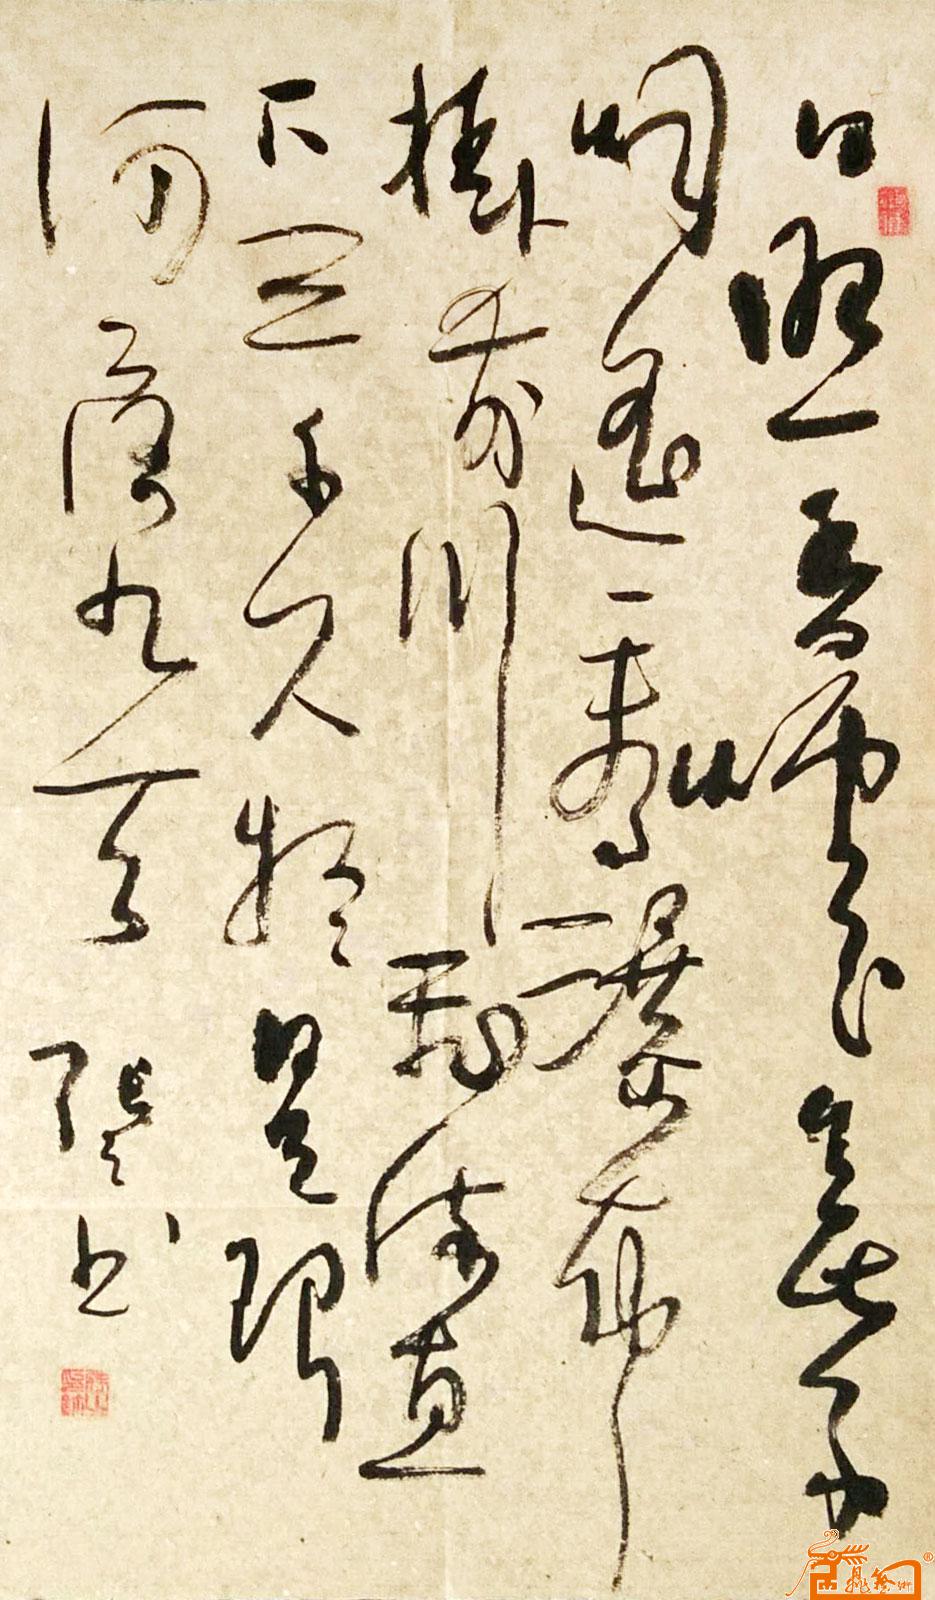 日照香爐生紫
烟遥看瀑布
掛前川飛流直
下三千尺疑是銀
河落九天 張书